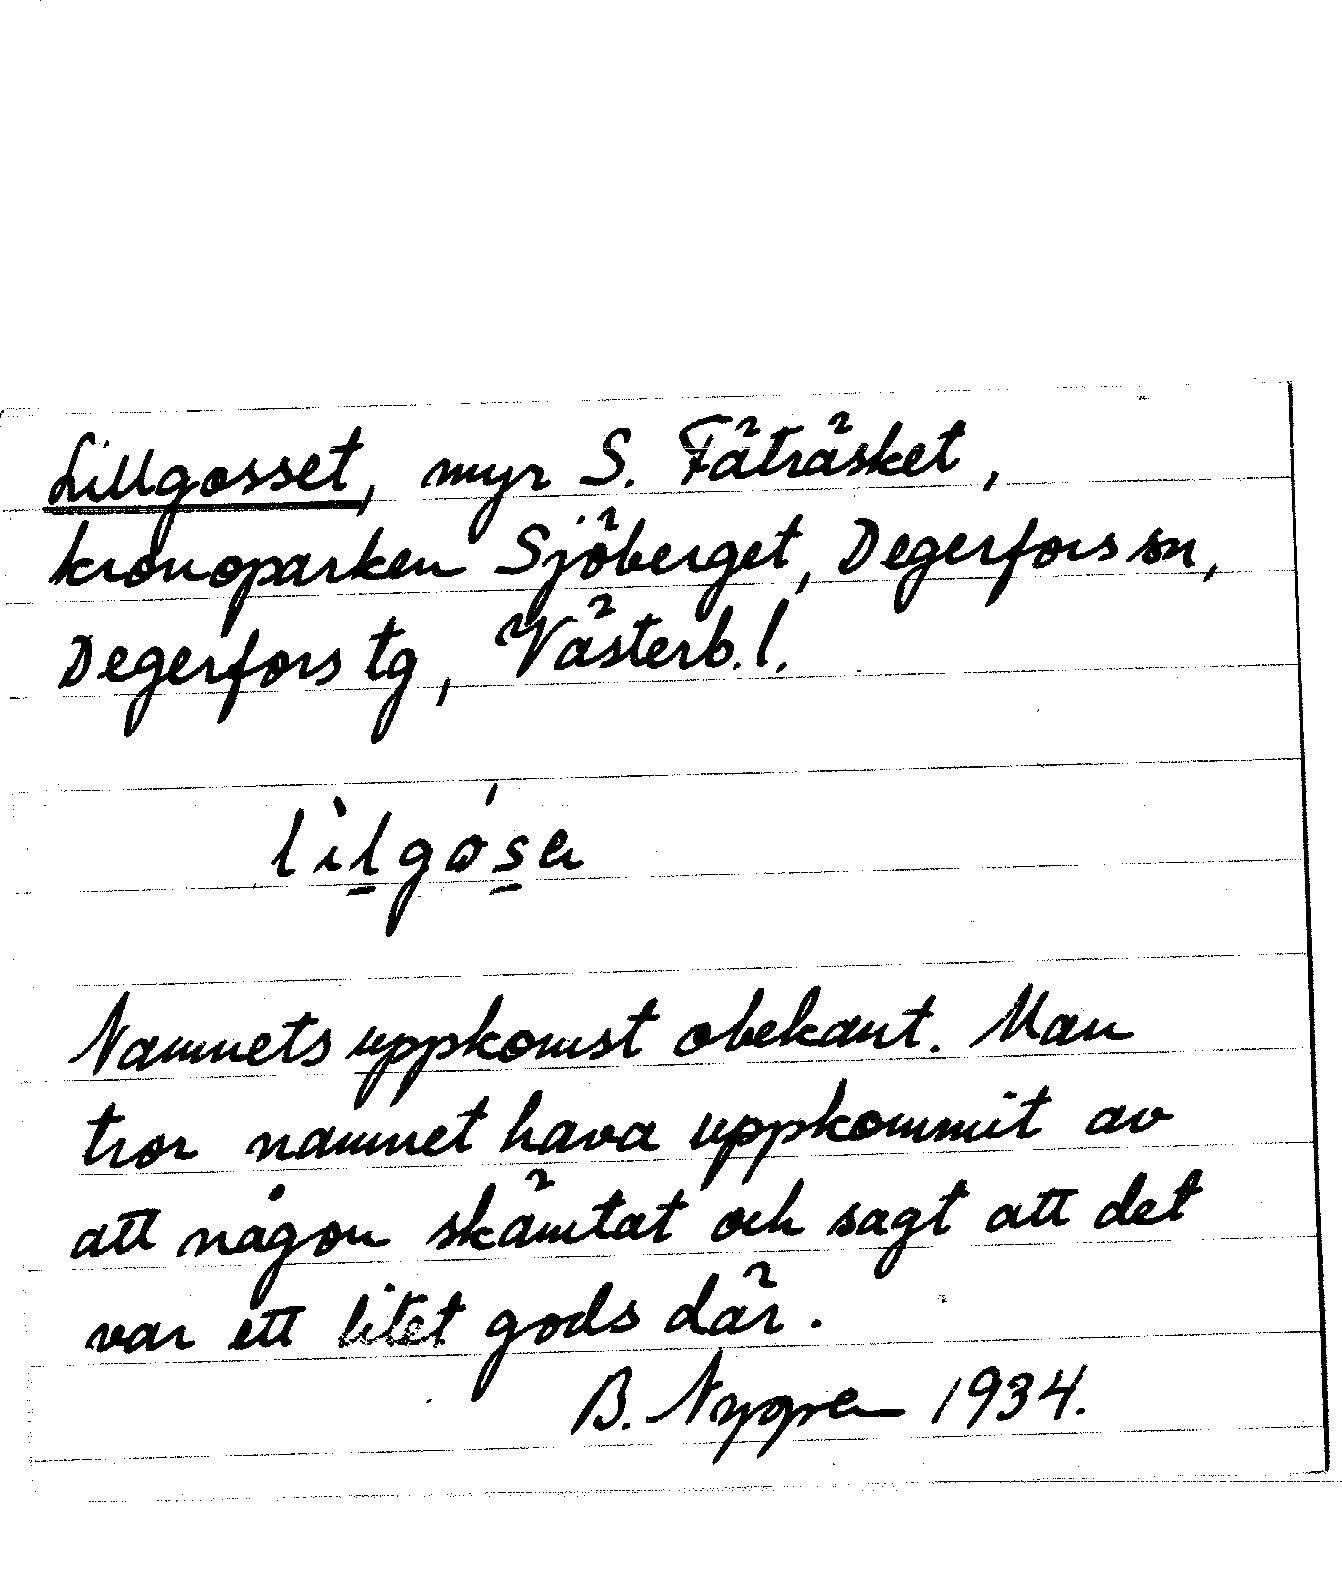 Lillgosset, myr S. Fäträsket,
kronoparken Sjöberget, Degerfors sn,
Degerfors tg, Västerb. l.
lìlgósa
Namnets uppkomst obekant. Man
tror namnet hava uppkommit av
att någon skämtat och sagt att det
var ett litet gods där.
B. Nygren 1934.